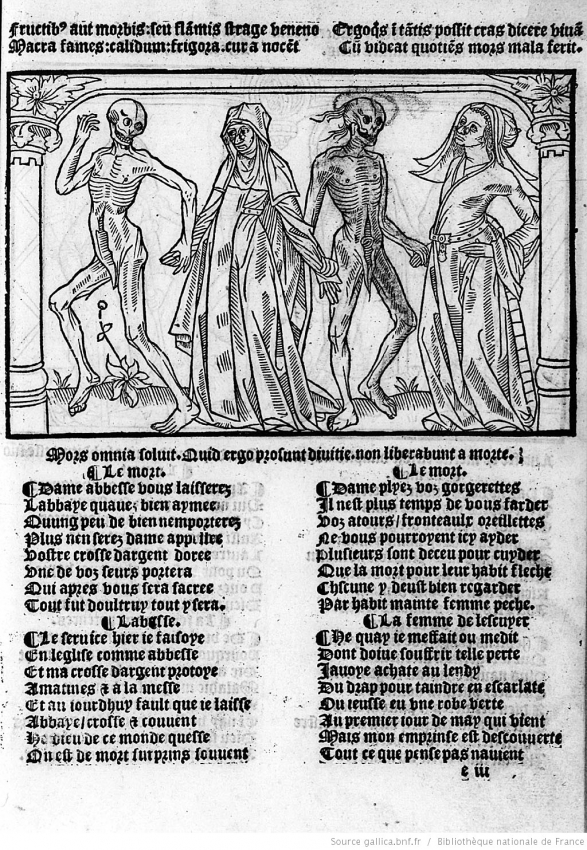 Fructib⁹ aut morbis: seu flāmis strage veneno
Macra fames: calidum: frigora. cura nocēt
Ergo q̄s ī tātis possit cras dicere viuā
Cū videat quotiēs mors mala ferit.
Mors omnia soluit. Quid ergo prosunt diuitie. non liberabunt a morte.
¶ Le mort.
¶ Dame abbesse vous laisserez
Labbaye quauez bien aymee
Quung peu de bien nemporterez
Plus nen serez dame appellee
Vostre crosse dargent doree
Vne de voz seurs portera
Qui apres vous sera sacree
Tout fut doultruy tout y sera.
¶ Labesse.
¶ Le seruice hier ie faisoye
En leglise comme abbesse
Et ma crosse dargent protoye
A matines ⁊ a la messe
Et au iourdhuy fault que ie laisse
Abbaye/ crosse ⁊ couuent
He dieu de ce monde quesse
On est de mort surprins souuent
¶ Le mort.
¶ Dame plyez voz gorgerettes
Il nest plus temps de vous farder
Voz atours/ fronteaulx oreillettes
Ne vous pourroyent icy ayder
Plusieurs sont deceu pour cuyder
Que la mort pour leur habit fleche
Chscune y deust bien regarder
Par habit mainte femme peche.
¶ La femme de lescuyer
¶ He quay ie meffait ou medit
Dont doiue souffrir telle perte
Jauoye achate au lendy
Du drap pour taindre en escarlate
Ou ieusse eu vne robe verte
Au premier iour de may qui vient
Mais mon emprinse est descouuerte
Tout ce que pense pas nauient
e iii
Source gallica.bnf.fr / Bibliothèque nationale de France